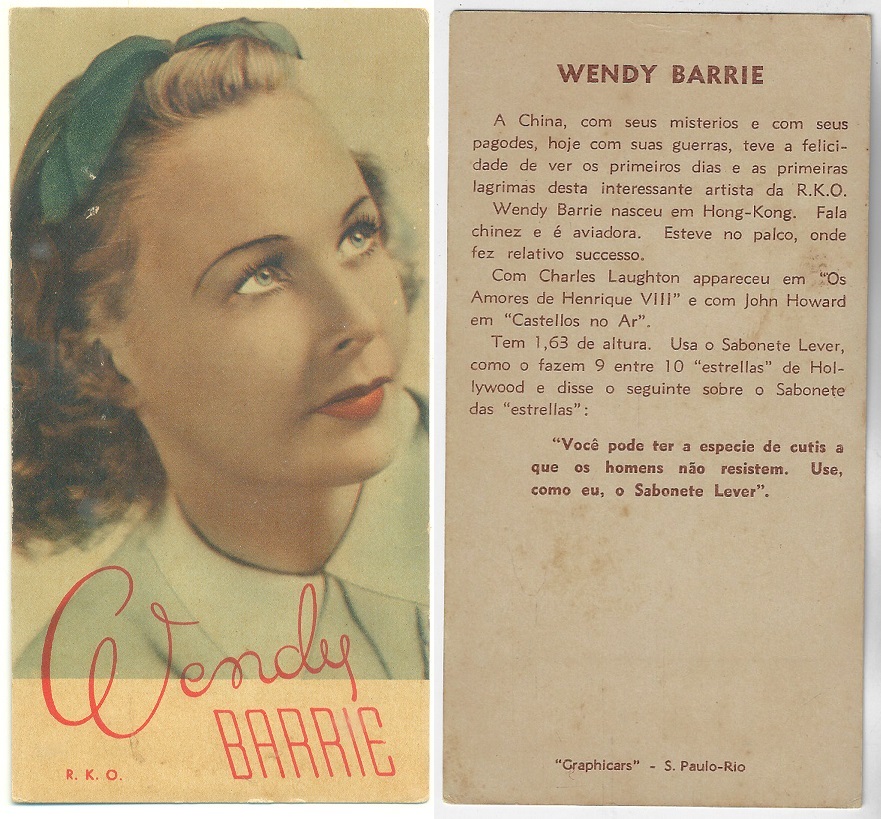 Wendy
BARRIE
R. K. O.
WENDY BARRIE
A China, com seus misterios e com seus
pagodes, hoje com suas guerras, teve a felici-
dade de ver os primeiros dias e as primeiras
lagrimas desta interessante artista da R.K.O.
Wendy Barrie nasceu em Hong-Kong. Fala
chinez e é aviadora. Esteve no palco, onde
fez relativo successo.
Com Charles Laughton appareceu em "Os
Amores de Henrique VIII" e com John Howard
em "Castellos no Ar".
Tem 1,63 de altura. Usa o Sabonete Lever,
como o fazem 9 entre 10 "estrellas" de Hol-
lywood e disse o seguinte sobre o Sabonete
das "estrellas":
"Você pode ter a especie de cutis a
que os homens não resistem. Use,
como eu, o Sabonete Lever".
"Graphicars" - S. Paulo-Rio